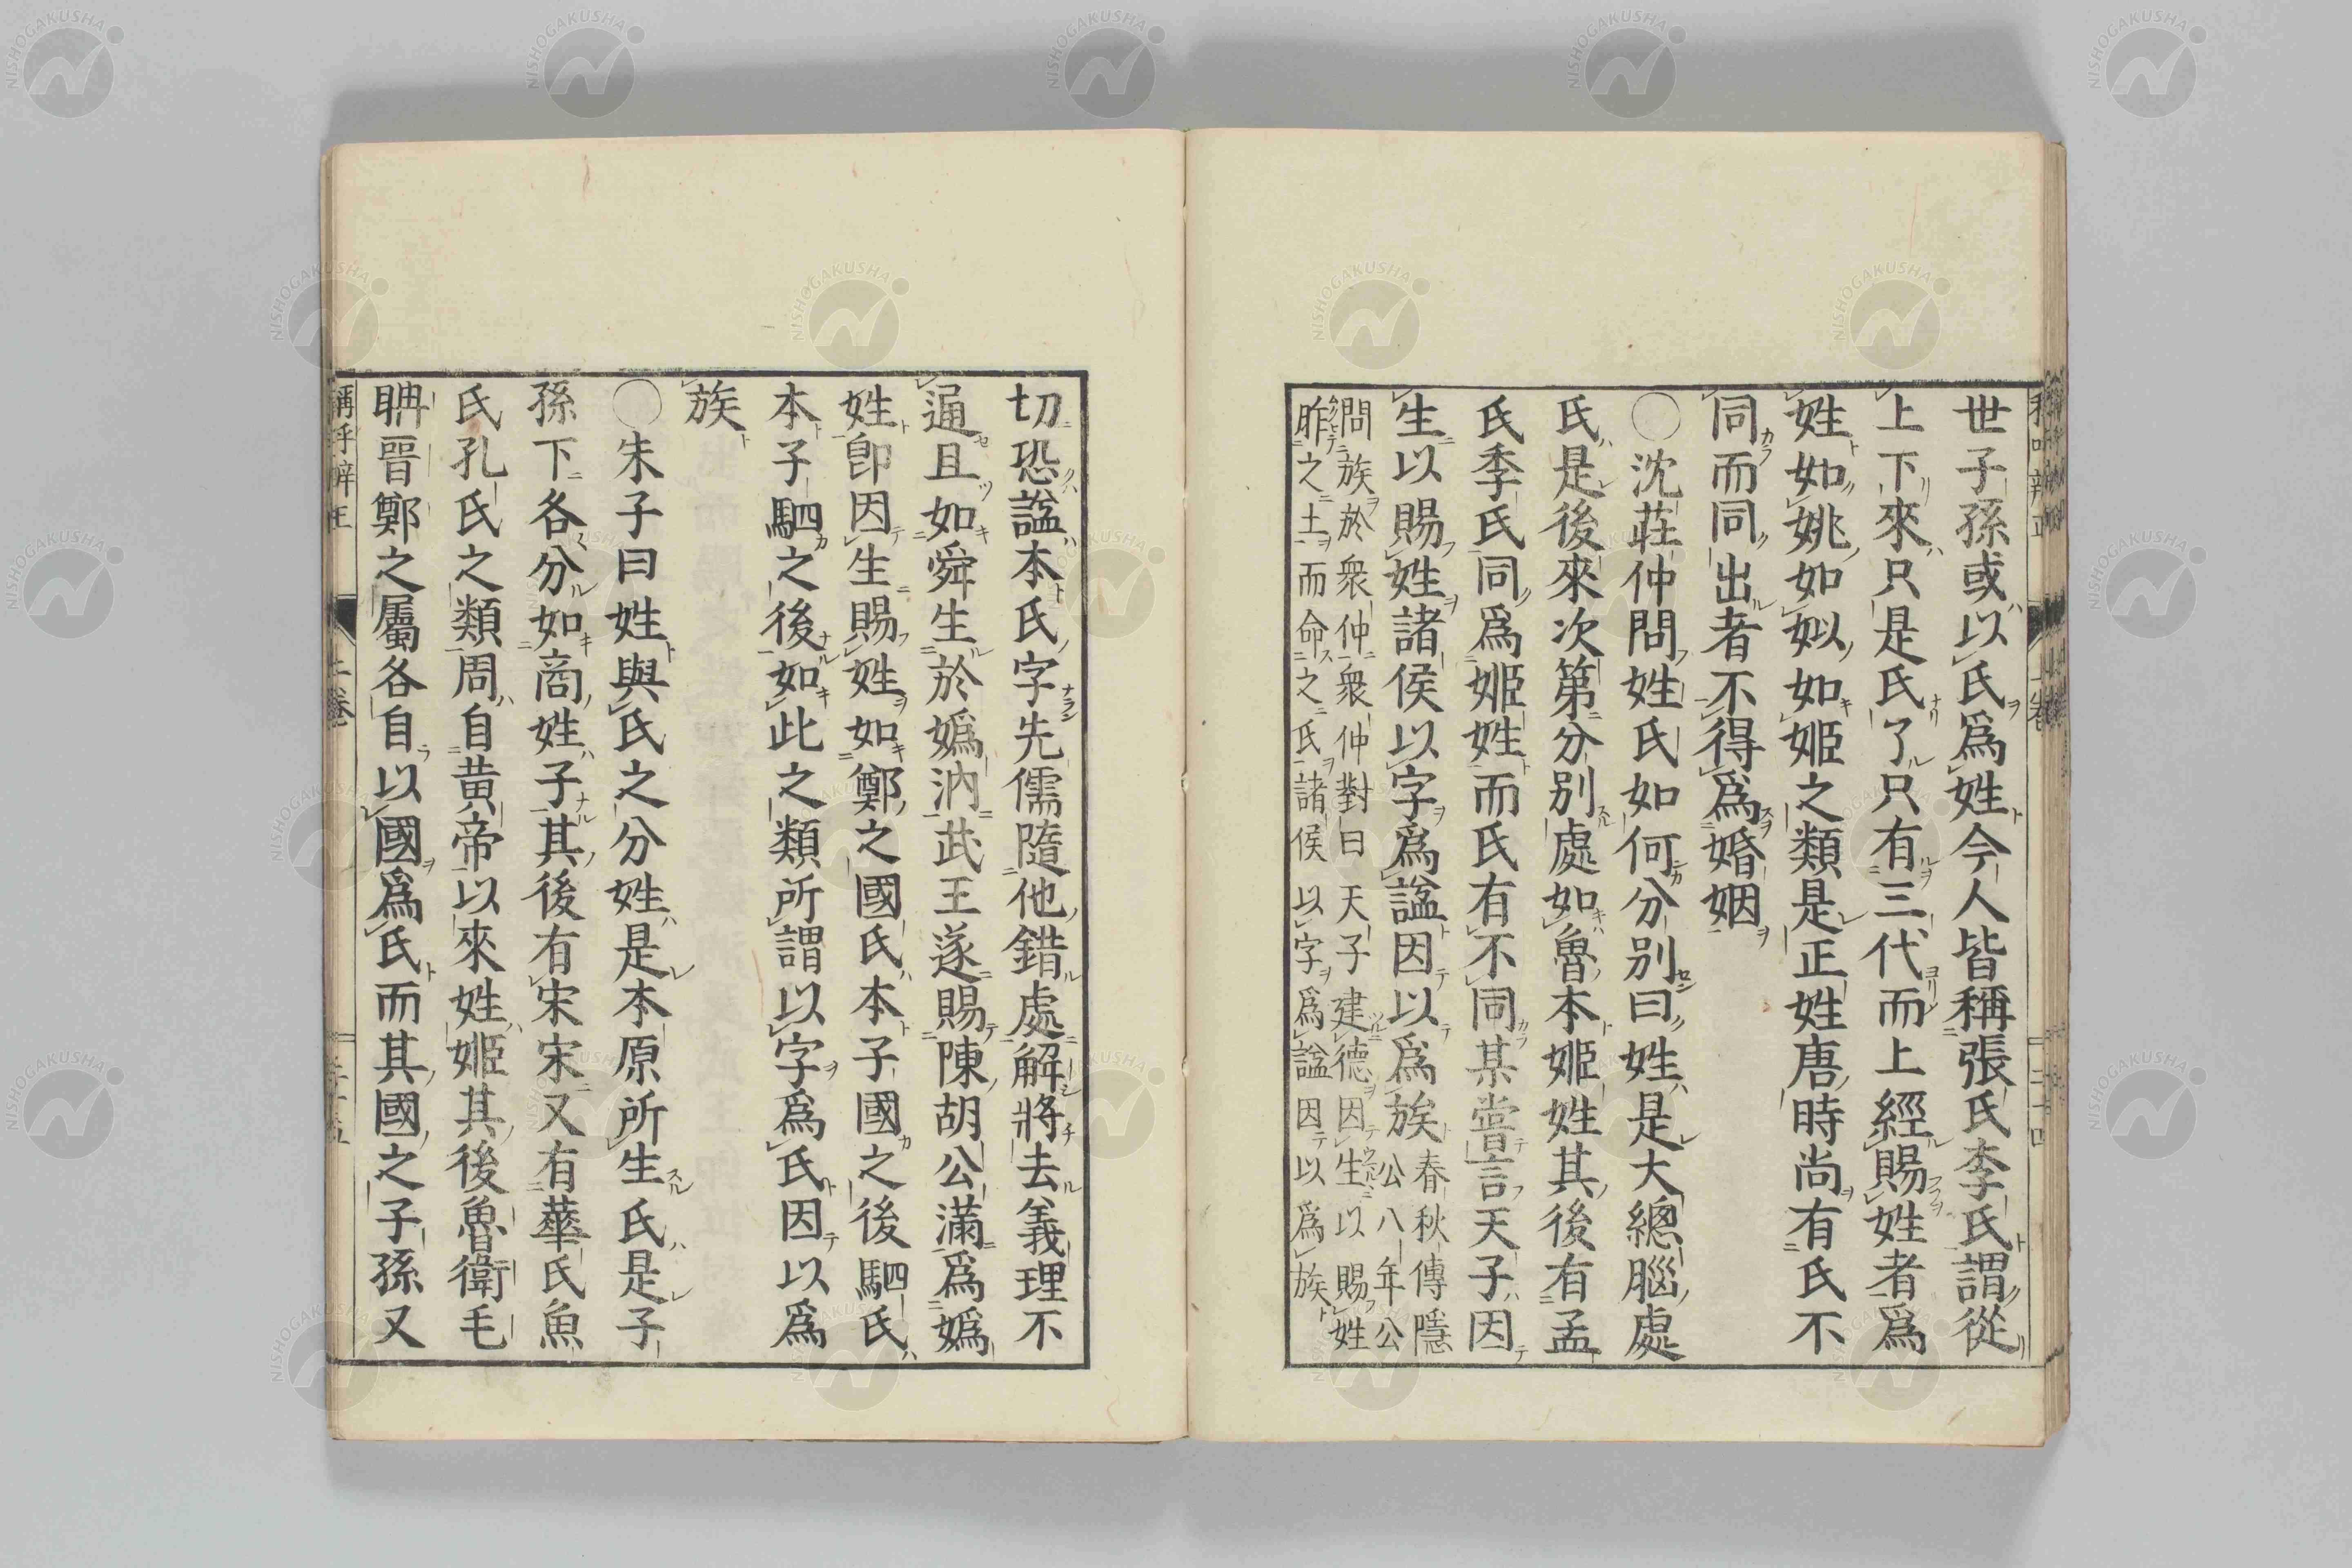 世子孫或以氏爲姓今人皆稱張氏李氏謂從
上下來只是氏了只有三代而上經賜姓者爲
姓如姚如姒如姬之類是正姓唐時尚有氏不
同而同出者不得爲婚姻
○沈莊仲問姓氏如何分别曰姓是大總腦處
氏是後來次第分别處如魯本姬姓其後有孟
氏季氏同爲姬姓而氏有不同某嘗言天子因
生以賜姓諸侯以字爲謚因以爲族春秋傳隱
公八年公
問族於衆仲衆仲對曰天子建德因生以賜姓
胙之土而命之氏諸侯以字爲謚因以爲族
切恐謚本氏字先儒隨他錯處解將去義理不
通且如舜生於嬀汭武王遂賜陳胡公滿爲嬀
姓卽因生賜姓如鄭之國氏本子國之後駟氏
本子駟之後如此之類所謂以字爲氏因以爲
族
○朱子曰姓與氏之分姓是本原所生氏是子
孫下各分如商姓子其後有宋宋又有華氏魚
氏孔氏之類周自黄帝以來姓姬其後魯衛毛
聃晉鄭之屬各自以國爲氏而其國之子孫又
稱呼辨正
上卷
NISHOGAKUSHA